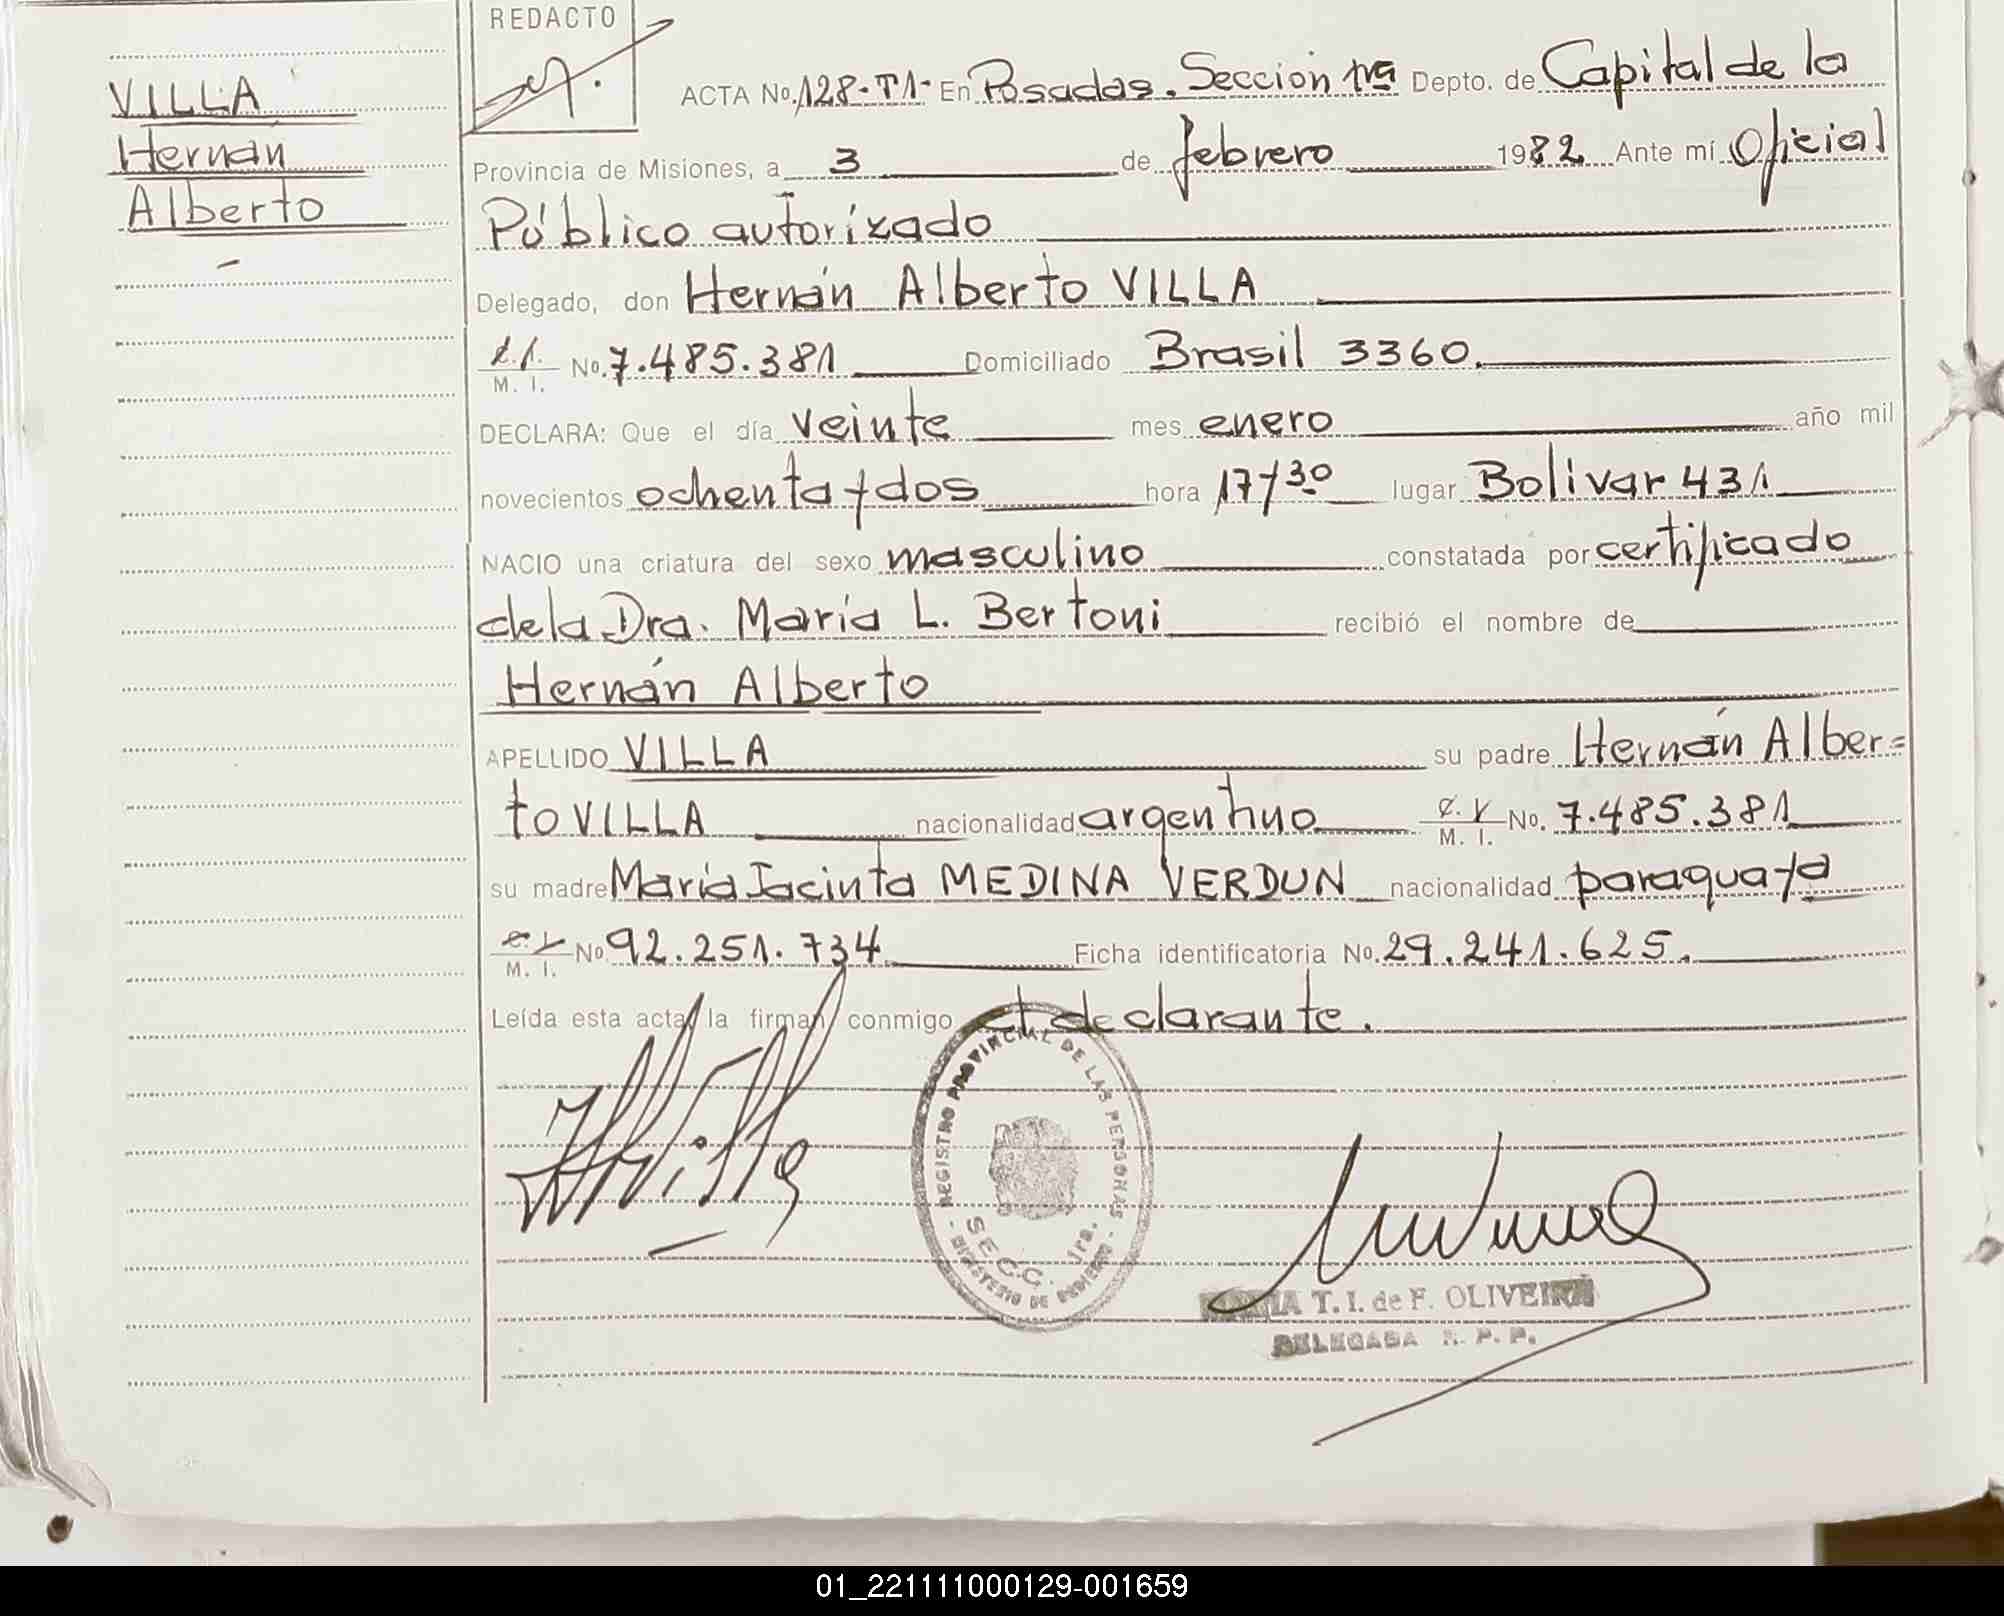 REDACTO
VILLA
Hernán
Alberto
ACTA No. 128-T1- En Posadas. Sección 1ra Depto. de Capital de la
Provincia de Misiones, a 3 de febrero 1982 Ante mí Oficial
Público autorizado
Delegado, don Hernán Alberto VILLA
M. I. No. 7.485.381 Domiciliado Brasil 3360.
DECLARA: Que el día veinte mes enero año mil
novecientos ochenta y dos hora 17y30 lugar Bolivar 431
NACIO una criatura del sexo masculino constatada por certificado
de la Dra. María L. Bertoni recibió el nombre de
Hernán Alberto
APELLIDO VILLA su padre Hernán Alber=
to VILLA nacionalidad argentino M. I. No. 7.485.381
su madre María Jacinta MEDINA VERDUN nacionalidad paraguaya
M. I. No. 92.251.734 Ficha identificatoria No. 29.241.625.
Leída esta acta, la firman conmigo el declarante.
REGISTRO PROVINCIAL DE LAS PERSONAS
SECC. 1ra.
- MINISTERIO DE GOBIERNO -
T. I. de F. OLIVEIRA
DELEGADA R. P. P.
01_221111000129-001659